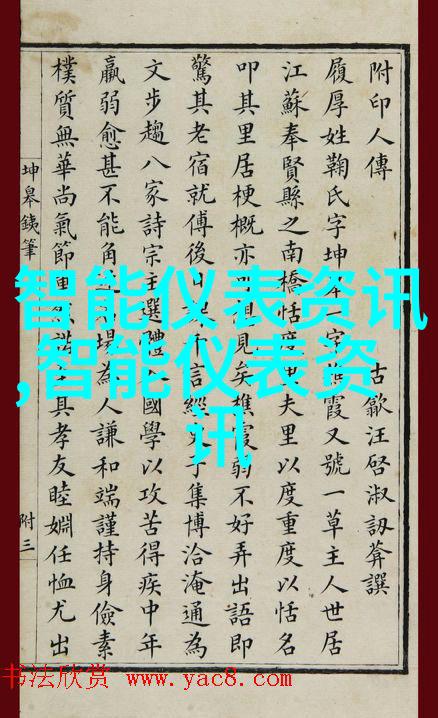 附印人傳 古歙汪啓淑訒葊譔
履厚姓鞠氏字坤一字霞又號一草主人世居
江蘇奉賢縣之南橋恬度夫里以度重度以恬名
叩其里居梗概亦可想見矣樵霞弱不好弄出語即
驚其老宿就傅後日千言經子集博洽淹通為
文步趨八家詩宗主選體國學以攻苦得疾中年
羸弱愈甚不能角場為人謙和端謹持身儉素
樸質無華尚氣節諾其孝友睦婣任恤尤出
坤皋銕筆
附三
智能仪表资讯
,智能仪表资
讯
书法欣赏 www.yac8.com